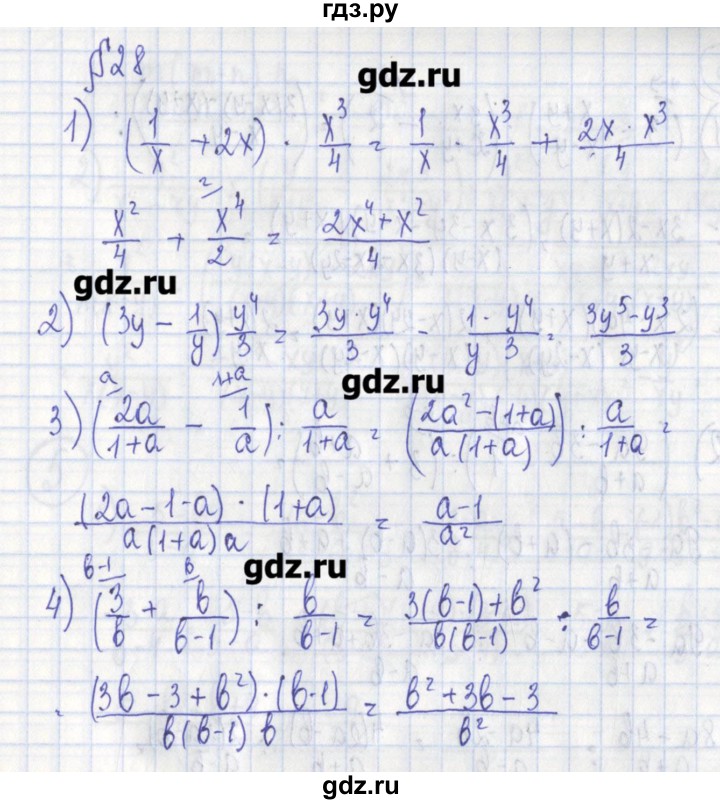 гдз.ру
§28
gdz.ru
1) (1/x + 2x) · x³/4 = 1/x · x³/4 + 2x · x³/4
x²/4 + x⁴/2 (2 = 2x⁴ + x²/4
gdz.ru
2) (3y − 1/y) y⁴/3 = 3y · y⁴/3 − 1 · y⁴/y 3 = 3y⁵ − y³/3
gdz.ru
a 1+a
3) (2a/1+a − 1/a) : a/1+a = (2a² − (1+a)/a(1+a)) : a/1+a =
(2a − 1 − a) · (1+a)/a(1+a) a = a − 1/a²
gdz.ru
в-1 в
4) (3/в + в/в-1) : в/в-1 = 3(в-1) + в²/в(в-1) : в/в-1 =
= (3в − 3 + в²) · (в-1)/в(в-1) в = в² + 3в − 3/в²
gdz.ru